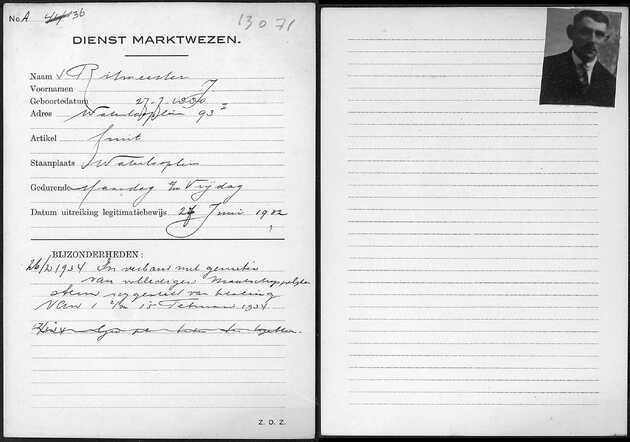 No. A 36
13071
DIENST MARKTWEZEN.
Naam Ritmeester
Voornamen J
Geboortedatum 27-7-1880
Adres Waterlooplein 93 I
Artikel fruit
Staanplaats Waterlooplein
Gedurende Maandag t/m Vrijdag
Datum uitreiking legitimatiebewijs 27 Juni 1922
BIJZONDERHEDEN:
26/2 1934 In verband met genieten
van volledigen Maatsch.
steun van betaling
van 1 t/m 15 Februari 1934
Z. D. Z.